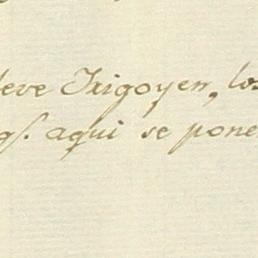 leve Irigoyen, los
qs. aqui se pone